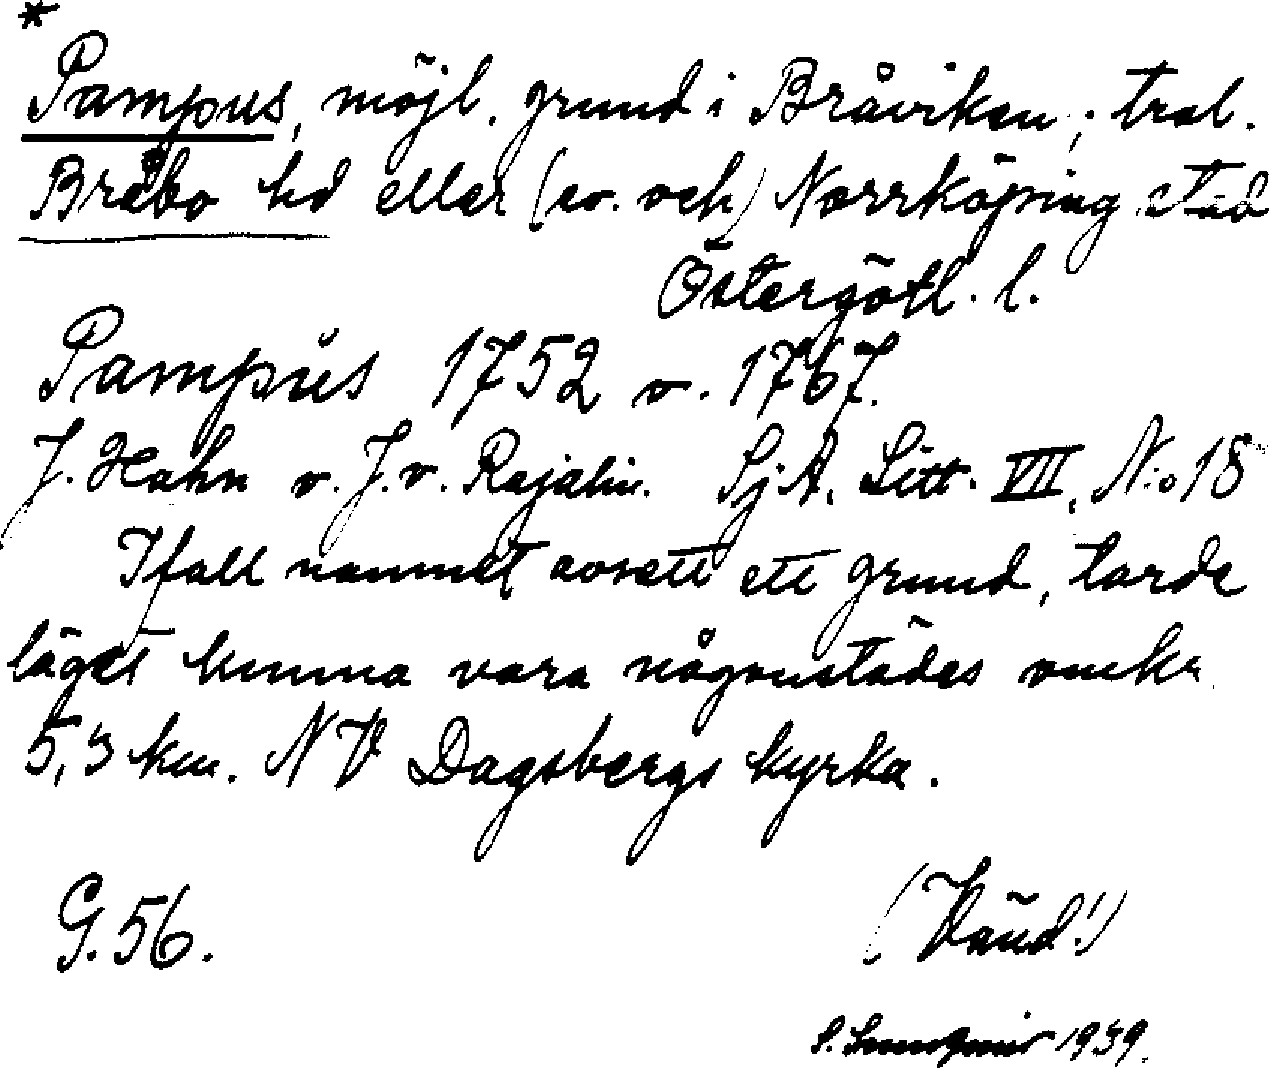 *
Pampus, möjl. grund i Bråviken; trol.
Bråbo hd eller (ev. och) Norrköping stad
Östergötl. l.
Pampus 1752 o. 1767.
J. Hahn o. J. v. Rajalin. Sj A. Litt. VII, N:o 18
Ifall namnet avsett ett grund, torde
läget kunna vara någonstädes omkr.
5,3 km. NV Dagsbergs kyrka.
G. 56.
(Vänd!)
1939.